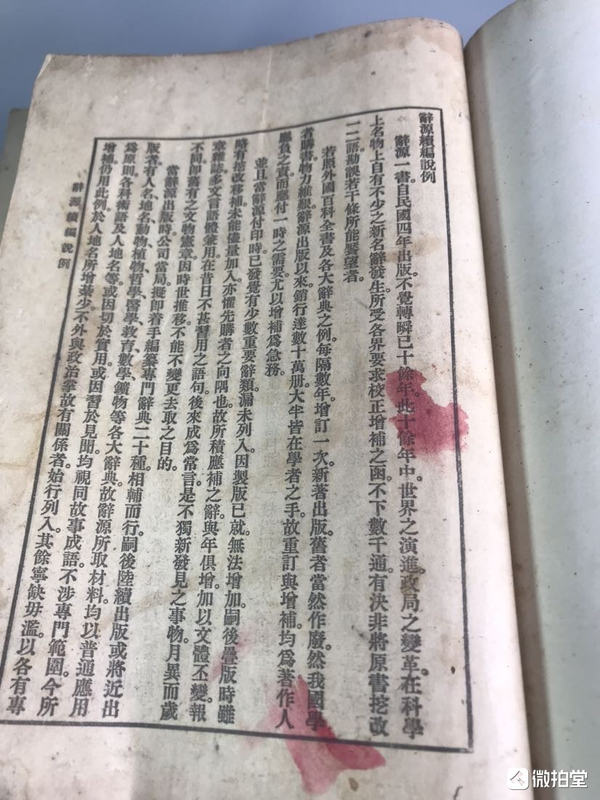 辭源續編說例
辭源一書自民國四年出版不覺轉瞬已十餘年此十餘年中世界之演進政局之變革在科學
上名物上自有不少之新名辭發生所受各界要求校正增補之函不下數千通有決非將原書挖改
一二語勘誤若干條所能饜望者
若照外國百科全書及各大辭典之例每隔數年增訂一次新著出版舊者當然作廢然我國學
者購書物力維艱辭源出版以來銷行達數十萬册大半皆在學者之手故重訂與增補均爲著作人
應負之責而應付一時之需要尤以增補爲急務
並且當辭源付印時已發覺有少數重要辭類漏未列入因製版已就無法增加嗣後疊版時雖
略有挖改移補未能儘量加入亦懼先購者之向隅也故所積應補之辭與年俱增加以文體丕變報
章雜誌多文言語體兼用在昔日不甚習用之語句後來成爲常言是不獨新發見之事物月異而歲
不同卽舊有之文物憲章因時世推移不能不變更去取之目的
當辭源出版時公司當局擬卽着手編纂專門辭典二十種相輔而行嗣後陸續出版或將近出
版者有人名地名動物植物哲學醫學教育數學鑛物等各大辭典故辭源所取材料均以普通應用
爲原則各科術語及人地名等或因切於實用或因習於見聞均視同故事成語不涉專門範圍今所
增補仍用此例於人地名所增綦少不外與政治掌故有關係者始行列入其餘寧缺毋濫以各有專
辭源續編說例
微拍堂